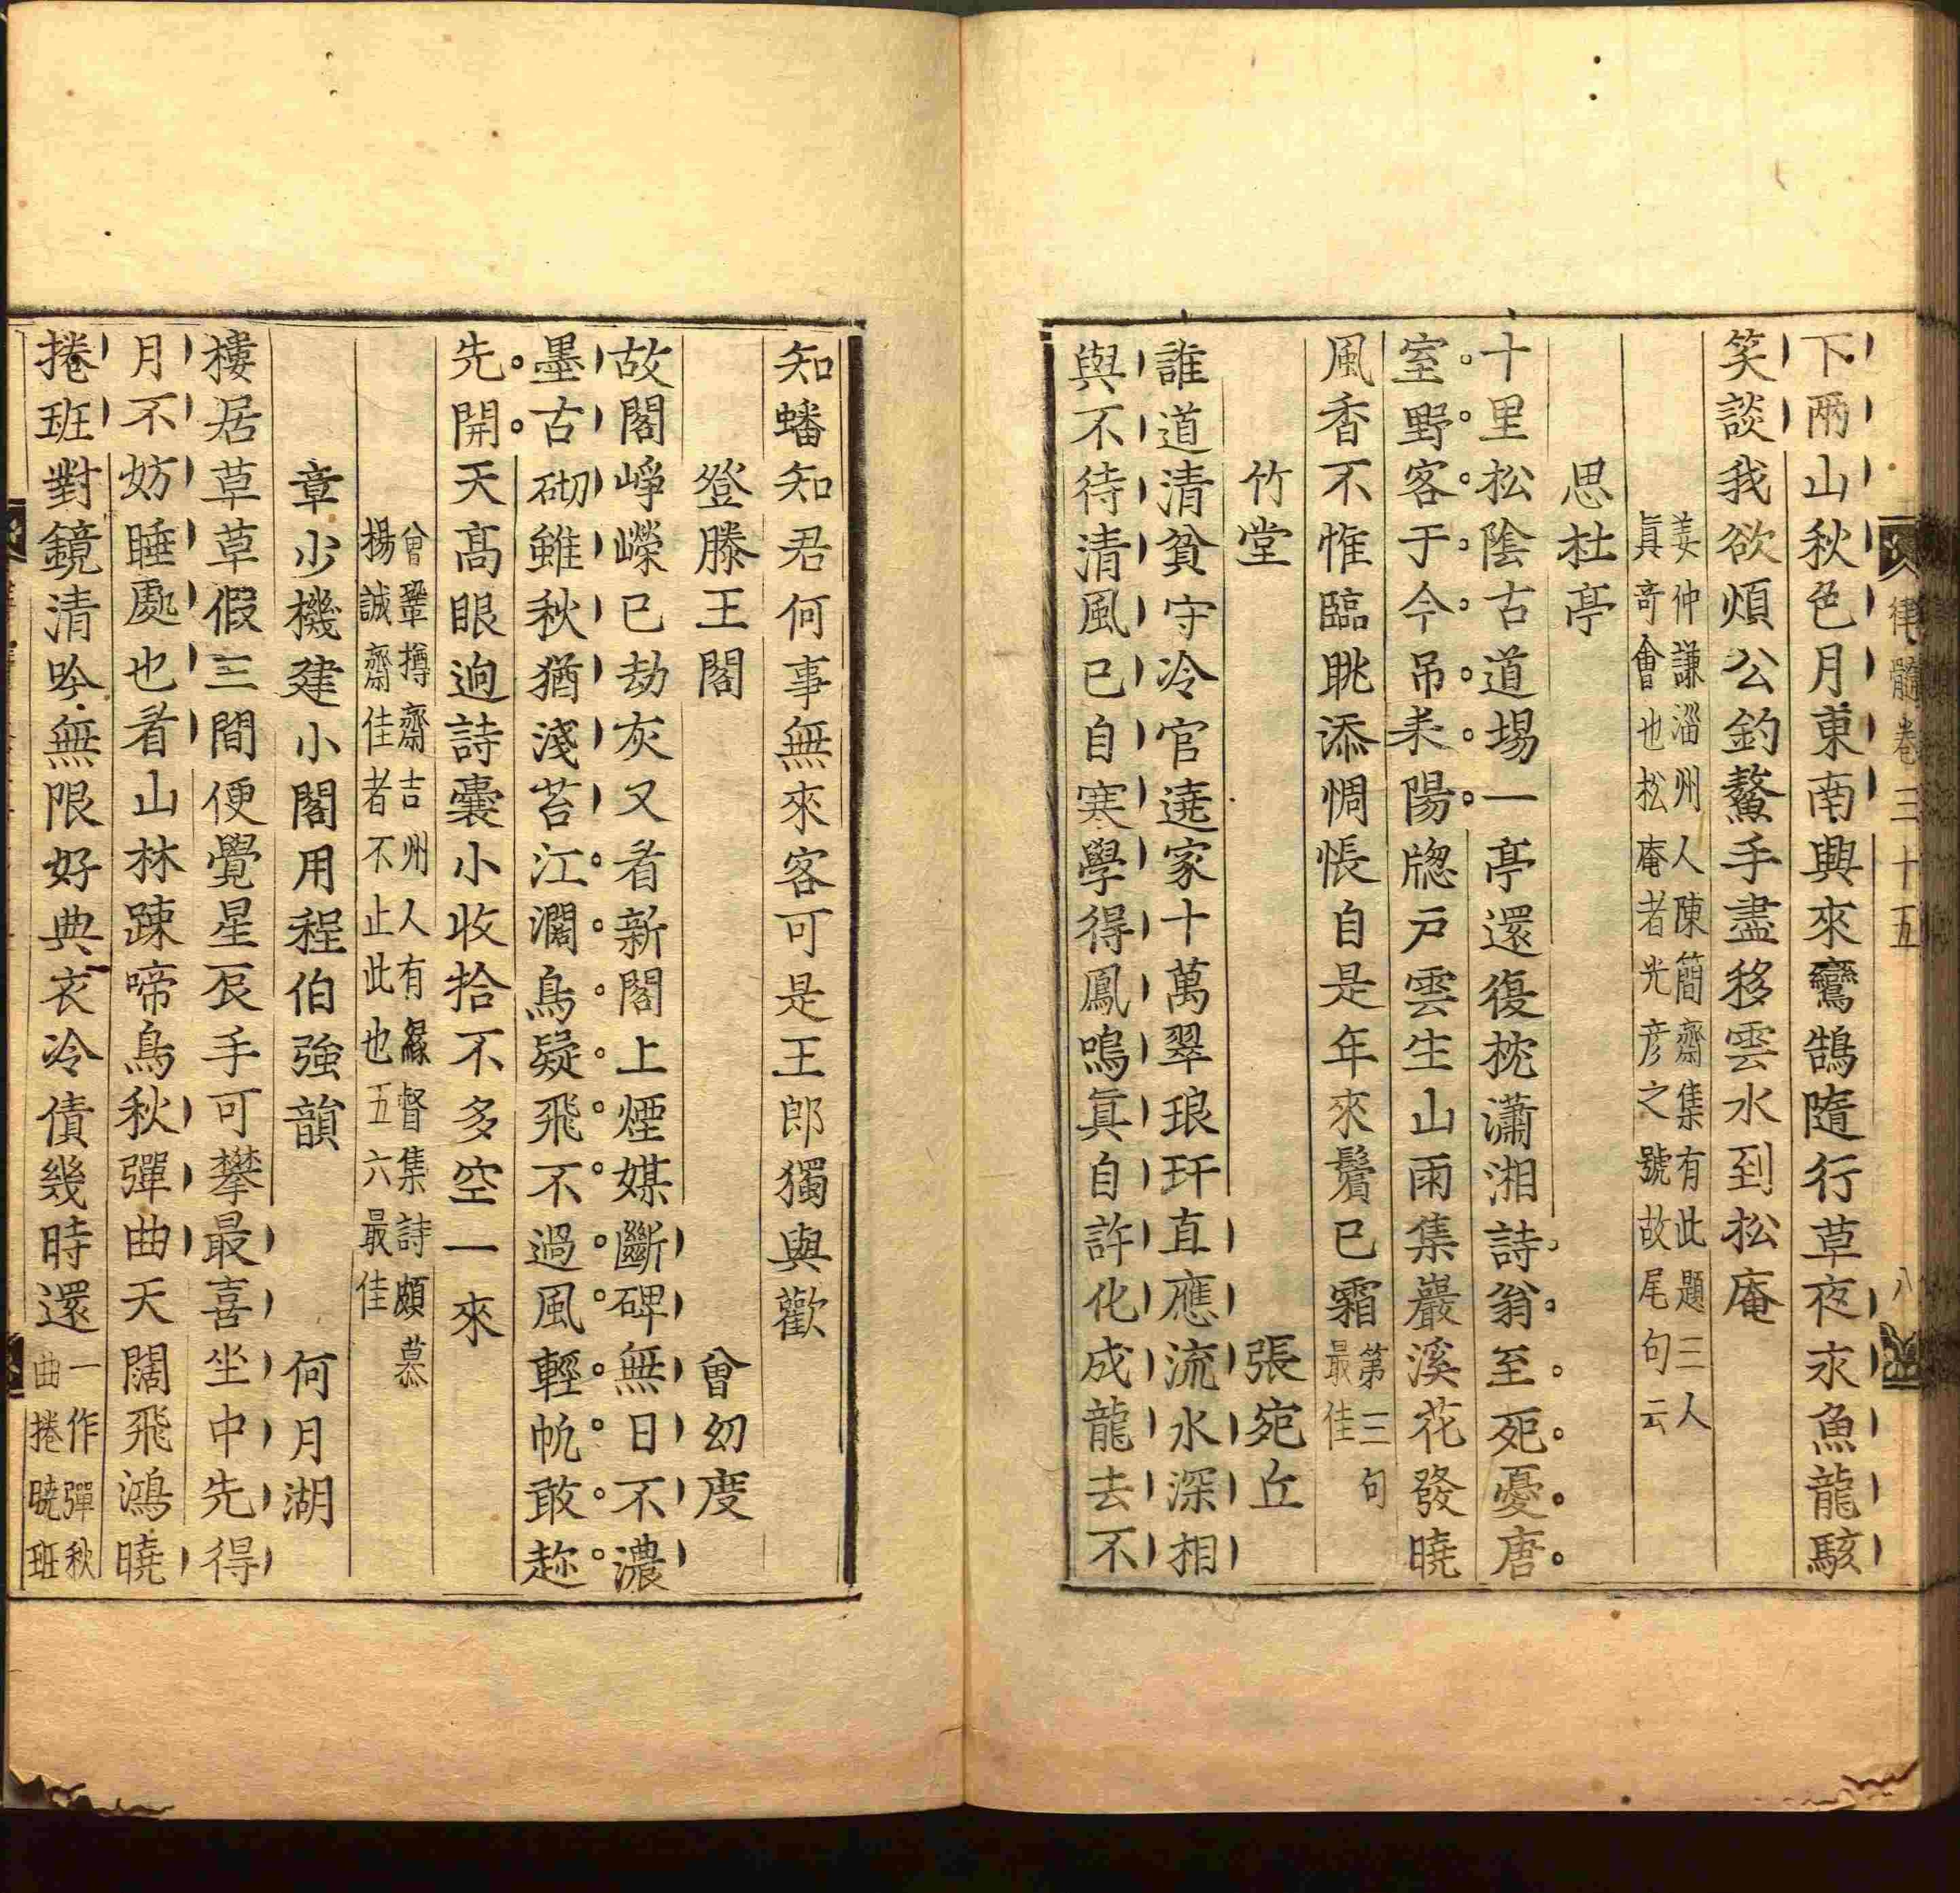 律髓卷三十五
八
下兩山秋色月東南興來鸞鵠隨行草夜永魚龍駭
笑談我欲煩公釣鰲手盡移雲水到松庵
姜仲謙淄州人陳簡齋集有此題三人
眞奇會也松庵者光彦之號故尾句云
思杜亭
十里松陰古道場一亭還復枕瀟湘詩翁至死憂唐
室野客于今吊耒陽牕戶雲生山雨集巖溪花發曉
風香不惟臨眺添惆悵自是年來鬢已霜
第三句
最佳
竹堂 張宛丘
誰道清貧守冷官遶家十萬翠琅玕直應流水深相
與不待清風已自寒學得鳳鳴眞自許化成龍去不
知蟠知君何事無來客可是王郎獨與歡
登滕王閣 曾幼度
故閣崢嶸已劫灰又看新閣上煙媒斷碑無日不濃
墨古砌雖秋猶淺苔江濶鳥疑飛不過風輕帆敢趂
先開天高眼逈詩囊小收拾不多空一來
曾鞏撙齋吉州人有緣督集詩頗慕
楊誠齋佳者不止此也五六最佳
章少機建小閣用程伯強韻 何月湖
樓居草草假三間便覺星辰手可攀最喜坐中先得
月不妨睡處也看山林踈啼鳥秋彈曲天闊飛鴻曉
捲班對鏡清吟無限好典衣冷債幾時還
一作彈秋
曲捲曉班